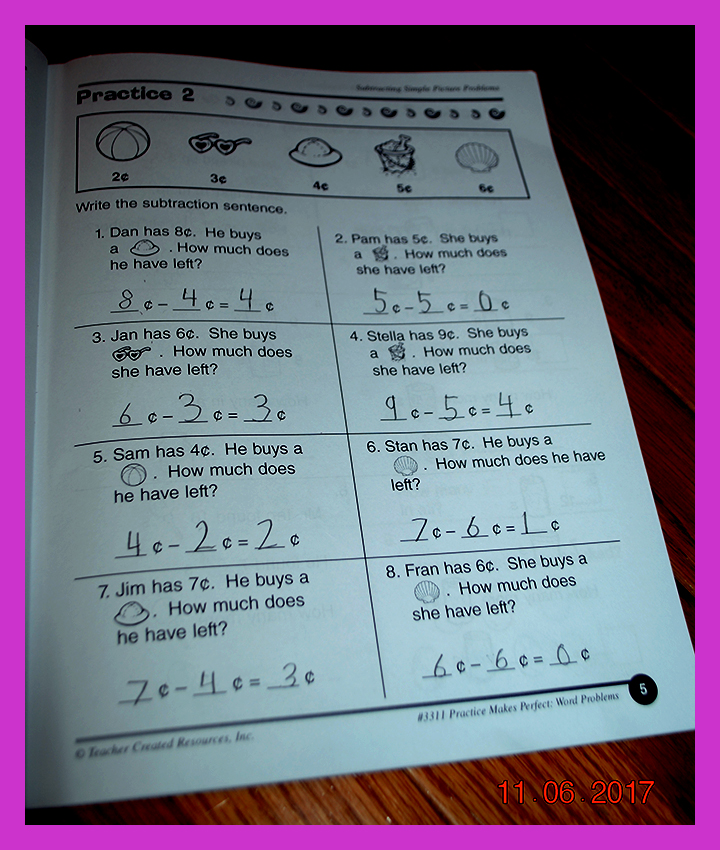 Practice 2
Subtracting Simple Picture Problems
2¢ 3¢ 4¢ 5¢ 6¢
Write the subtraction sentence.
1. Dan has 8¢. He buys
a . How much does
he have left?
8 ¢ – 4 ¢ = 4 ¢
2. Pam has 5¢. She buys
a . How much does
she have left?
5 ¢ – 5 ¢ = 0 ¢
3. Jan has 6¢. She buys
. How much does
she have left?
6 ¢ – 3 ¢ = 3 ¢
4. Stella has 9¢. She buys
a . How much does
she have left?
9 ¢ – 5 ¢ = 4 ¢
5. Sam has 4¢. He buys a
. How much does
he have left?
4 ¢ – 2 ¢ = 2 ¢
6. Stan has 7¢. He buys a
. How much does he have
left?
7 ¢ – 6 ¢ = 1 ¢
7. Jim has 7¢. He buys a
. How much does
he have left?
7 ¢ – 4 ¢ = 3 ¢
8. Fran has 6¢. She buys a
. How much does
she have left?
6 ¢ – 6 ¢ = 0 ¢
© Teacher Created Resources, Inc.
#3311 Practice Makes Perfect: Word Problems
5
11.06.2017